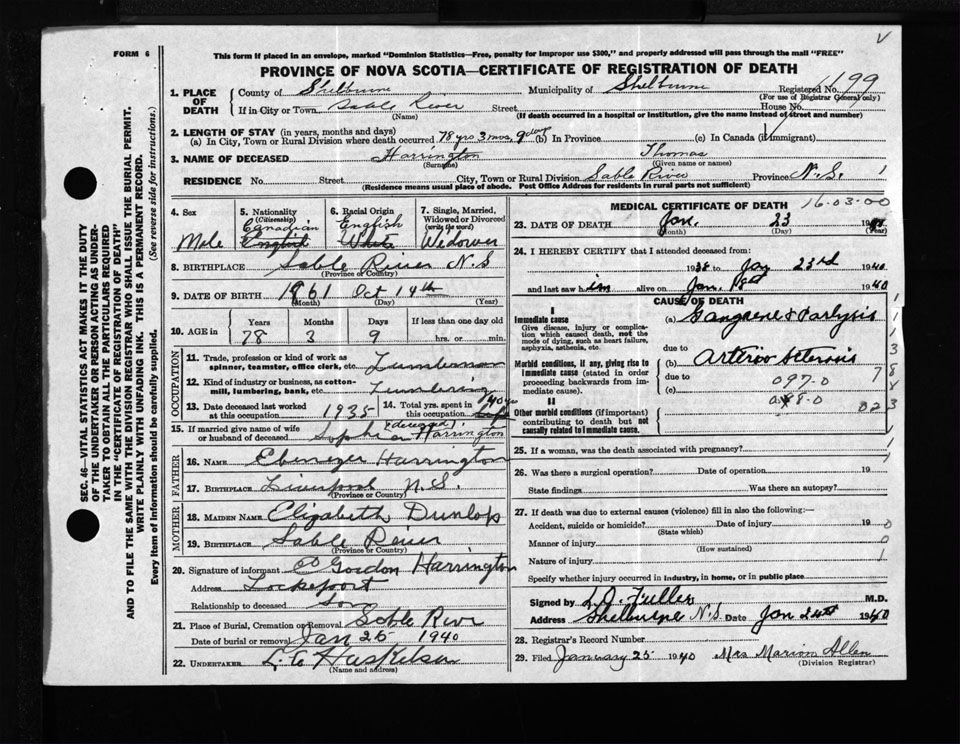 FORM 6
This form if placed in an envelope, marked "Dominion Statistics—Free, penalty for improper use $300," and properly addressed will pass through the mail "FREE"
PROVINCE OF NOVA SCOTIA—CERTIFICATE OF REGISTRATION OF DEATH
1. PLACE OF DEATH County of Shelburne Municipality of Shelburne Registered No. 1199
(For use of Registrar General only)
If in City or Town Sable River Street House No.
(Name) (If death occurred in a hospital or institution, give the name instead of street and number)
2. LENGTH OF STAY (in years, months and days)
(a) In City, Town or Rural Division where death occurred 78 yrs 3 mos, 9 days (b) In Province (c) In Canada (if immigrant)
3. NAME OF DECEASED Harrington Thomas
(Surname) (Given name or names)
RESIDENCE No. Street City, Town or Rural Division Sable River Province N.S. 1
(Residence means usual place of abode. Post Office Address for residents in rural parts not sufficient)
4. Sex 5. Nationality (Citizenship) 6. Racial Origin 7. Single, Married, Widowed or Divorced (write the word)
Canadian English
Male English White Widower
8. BIRTHPLACE Sable River N.S
(Province or Country)
9. DATE OF BIRTH 1861 Oct 14th
(Month) (Day) (Year)
10. AGE in Years Months Days If less than one day old
78 3 9 hrs. or min.
OCCUPATION
11. Trade, profession or kind of work as spinner, teamster, office clerk, etc. Lumberman
12. Kind of industry or business, as cotton-mill, lumbering, bank, etc. Lumbering
13. Date deceased last worked at this occupation 1935 14. Total yrs. spent in this occupation
15. If married give name of wife or husband of deceased (deceased) Sophia Harrington
FATHER
16. NAME Ebenezer Harrington
17. BIRTHPLACE Liverpool N.S.
(Province or Country)
MOTHER
18. MAIDEN NAME Elizabeth Dunlop
19. BIRTHPLACE Sable River
(Province or Country)
20. Signature of informant Gordon Harrington
Address Lockeport
Relationship to deceased Son
21. Place of Burial, Cremation or Removal Sable River
Date of burial or removal Jan 25 1940
22. UNDERTAKER L. E
(Name and address)
MEDICAL CERTIFICATE OF DEATH 16-03-00
23. DATE OF DEATH Jan. 23 19
(Month) (Day) (Year)
24. I HEREBY CERTIFY that I attended deceased from:
1938 to Jan 23rd 1940
and last saw him alive on Jan. 1940
CAUSE OF DEATH
I
Immediate cause (a) Gangrene & Paralysis
Give disease, injury or complication which caused death, not the mode of dying, such as heart failure, asphyxia, asthenia, etc.
due to
Morbid conditions, if any, giving rise to immediate cause (stated in order proceeding backwards from immediate cause).
(b) Arterio Sclerosis
due to 097.0
(c)
II
Other morbid conditions (if important) contributing to death but not causally related to immediate cause.
25. If a woman, was the death associated with pregnancy?
26. Was there a surgical operation? Date of operation 19
State findings Was there an autopsy?
27. If death was due to external causes (violence) fill in also the following:—
Accident, suicide or homicide? Date of injury 19
(State which)
Manner of injury
(How sustained)
Nature of injury
Specify whether injury occurred in industry, in home, or in public place
Signed by L. O. Fuller M.D.
Address Shelburne N.S. Date Jan 1940
28. Registrar's Record Number
29. Filed January 25 1940 Mrs Marion Allen
(Division Registrar)
SEC. 46—VITAL STATISTICS ACT MAKES IT THE DUTY
OF THE UNDERTAKER OR PERSON ACTING AS UNDER-
TAKER TO OBTAIN ALL THE PARTICULARS REQUIRED
IN THE "CERTIFICATE OF REGISTRATION OF DEATH"
AND TO FILE THE SAME WITH THE DIVISION REGISTRAR WHO SHALL ISSUE THE BURIAL PERMIT.
WRITE PLAINLY WITH UNFADING INK. THIS IS A PERMANENT RECORD.
Every item of information should be carefully supplied. (See reverse side for instructions.)